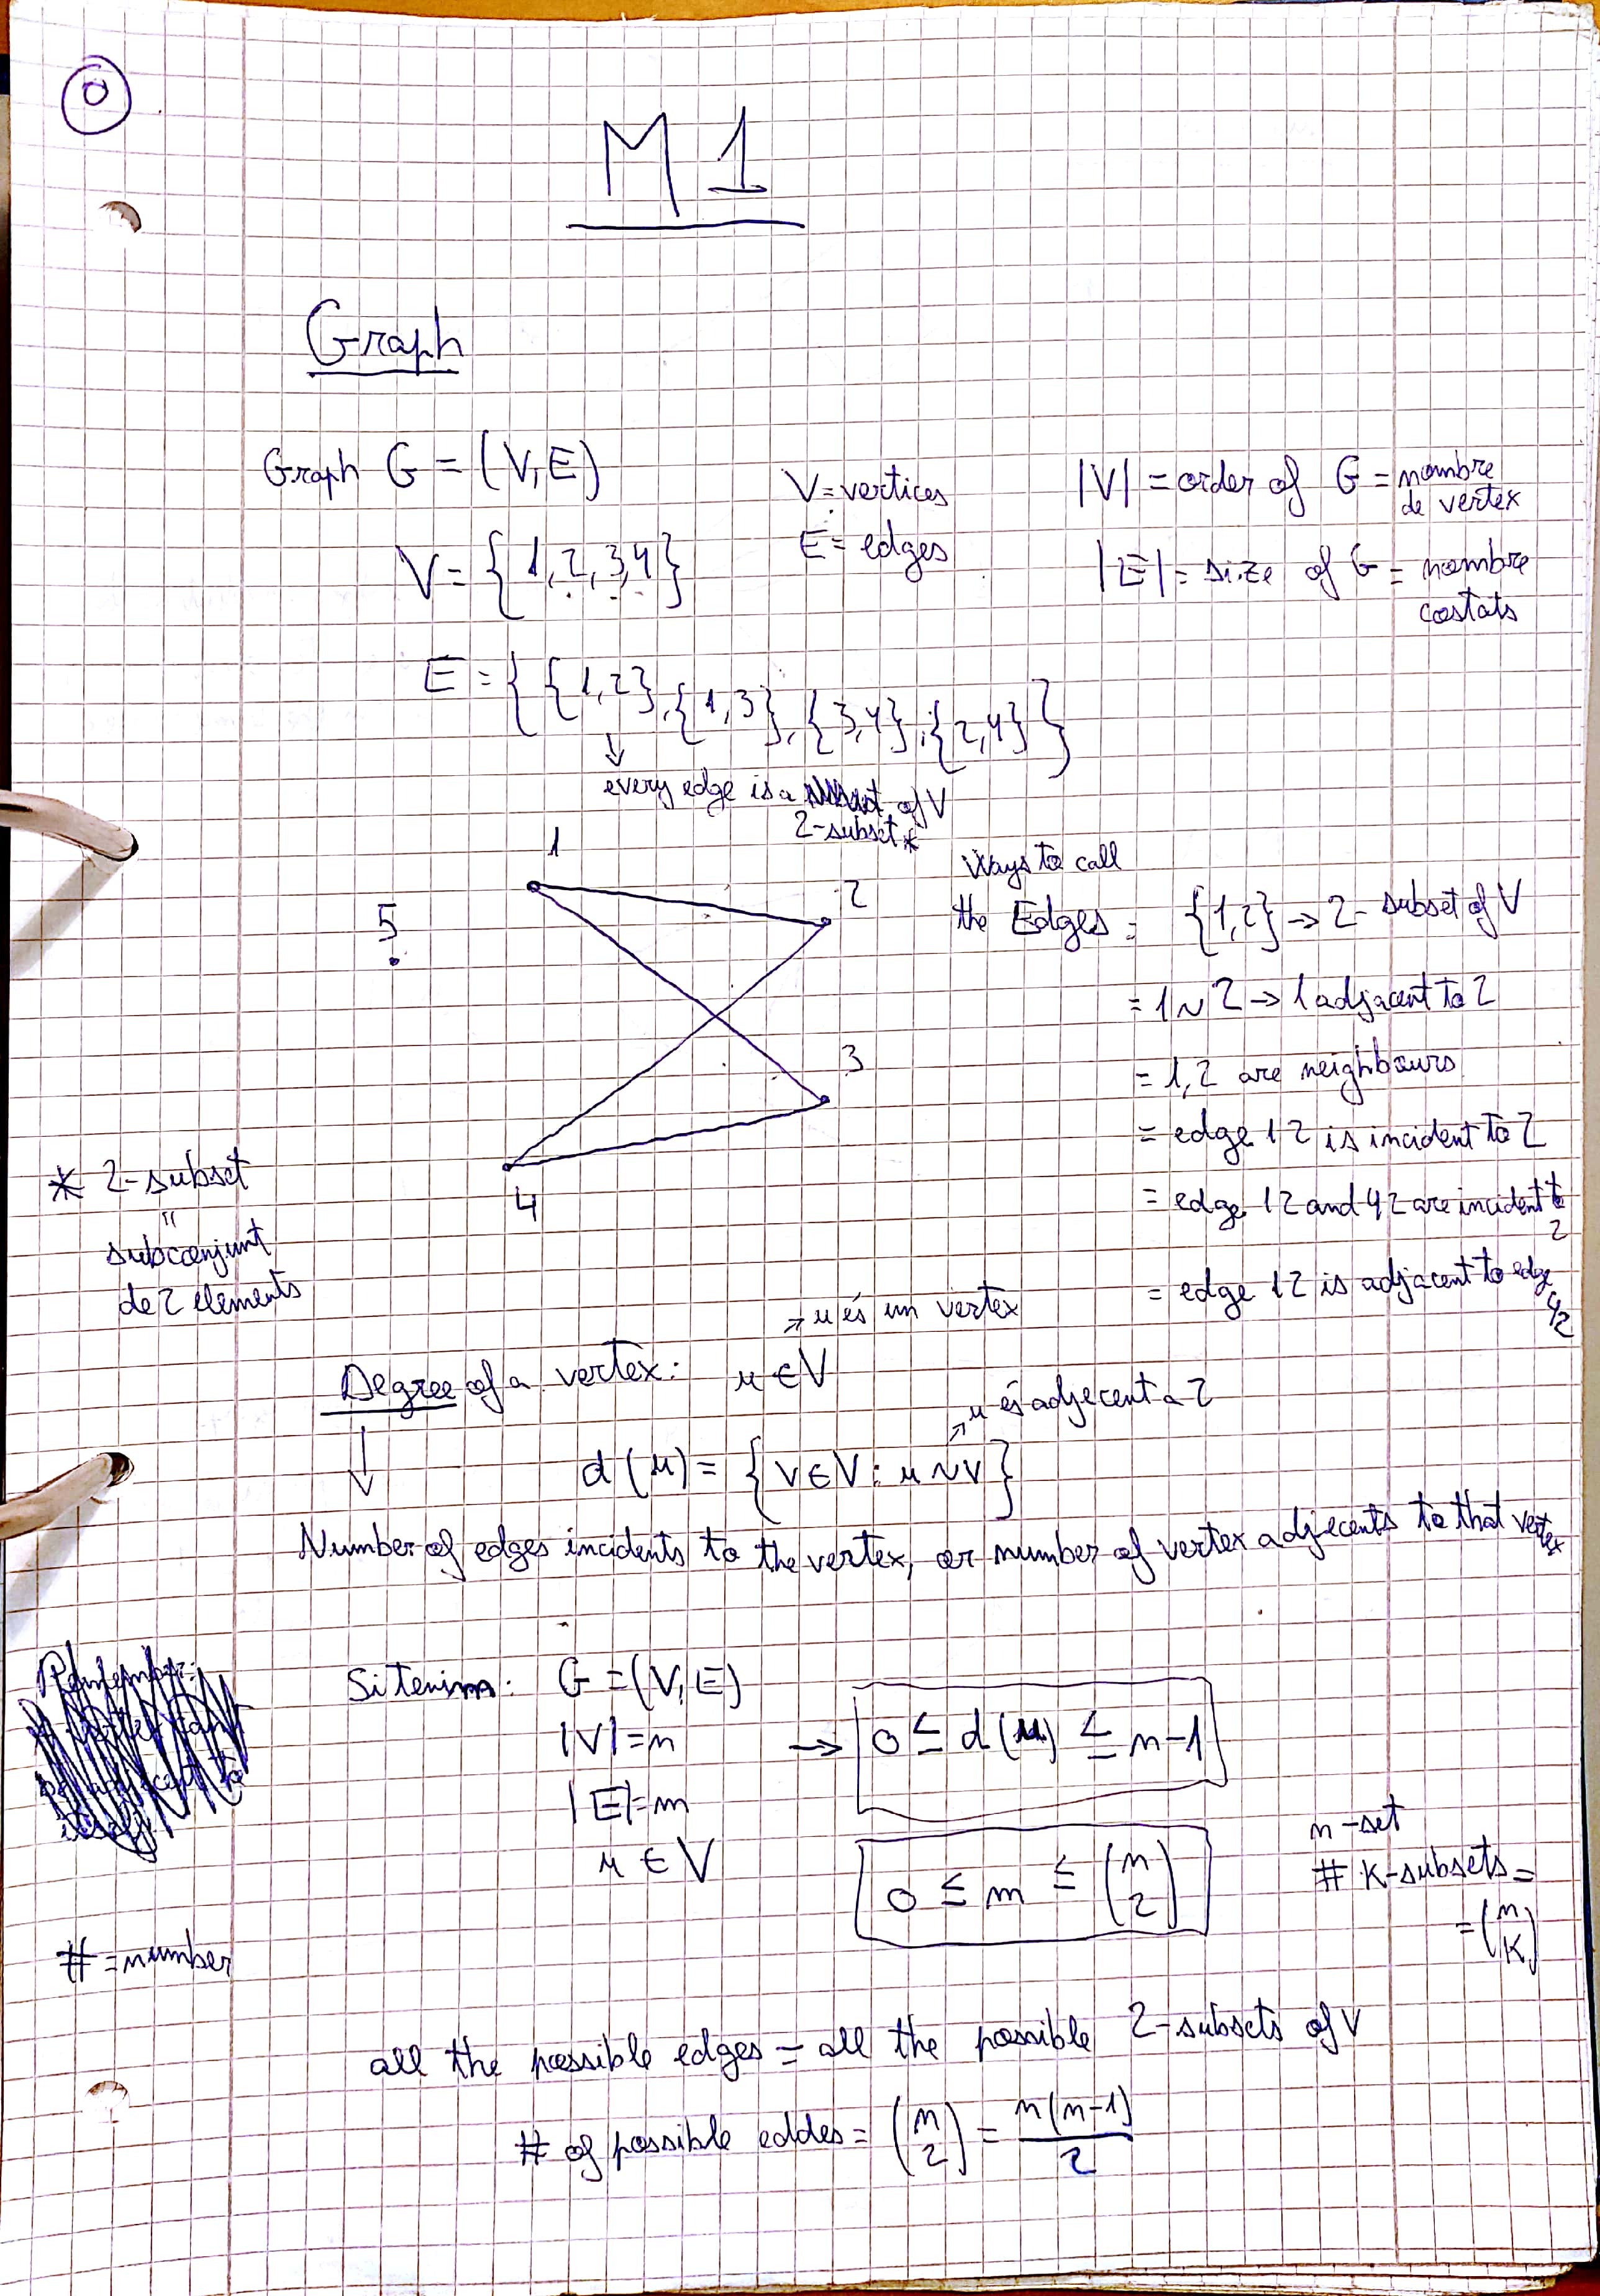 0
M1
Graph
Graph G = (V, E)
V = vertices
E = edges
|V| = order of G = nombre
de vertex
|E| = size of G = nombre
costats
V = {1, 2, 3, 4}
E = {{1, 2}, {1, 3}, {3, 4}, {2, 4}}
↓
every edge is a of V
2-subset *
1
2
3
4
5
Ways to call
the Edges = {1,2} → 2-subset of V
= 1 ~ 2 → 1 adjacent to 2
= 1, 2 are neighbours
= edge 12 is incident to 2
= edge 12 and 42 are incident to
2
= edge 12 is adjacent to edge
42
* 2-subset
"
subconjunt
de 2 elements
→ u és un vertex
Degree of a vertex: u ∈ V
↗ u és adjecent a 2
d(u) = {v ∈ V : u ~ v}
Number of edges incidents to the vertex, or number of vertex adjecents to that vertex
Remember:
itself
Si tenim: G = (V, E)
|V| = n → 0 ≤ d(u) ≤ n-1
|E| = m
u ∈ V
0 ≤ m ≤ (n 2)
n-set
# K-subsets =
= (n K)
# = number
all the possible edges = all the possible 2-subsets of V
# of possible eddes = (n 2) = n(n-1)/2